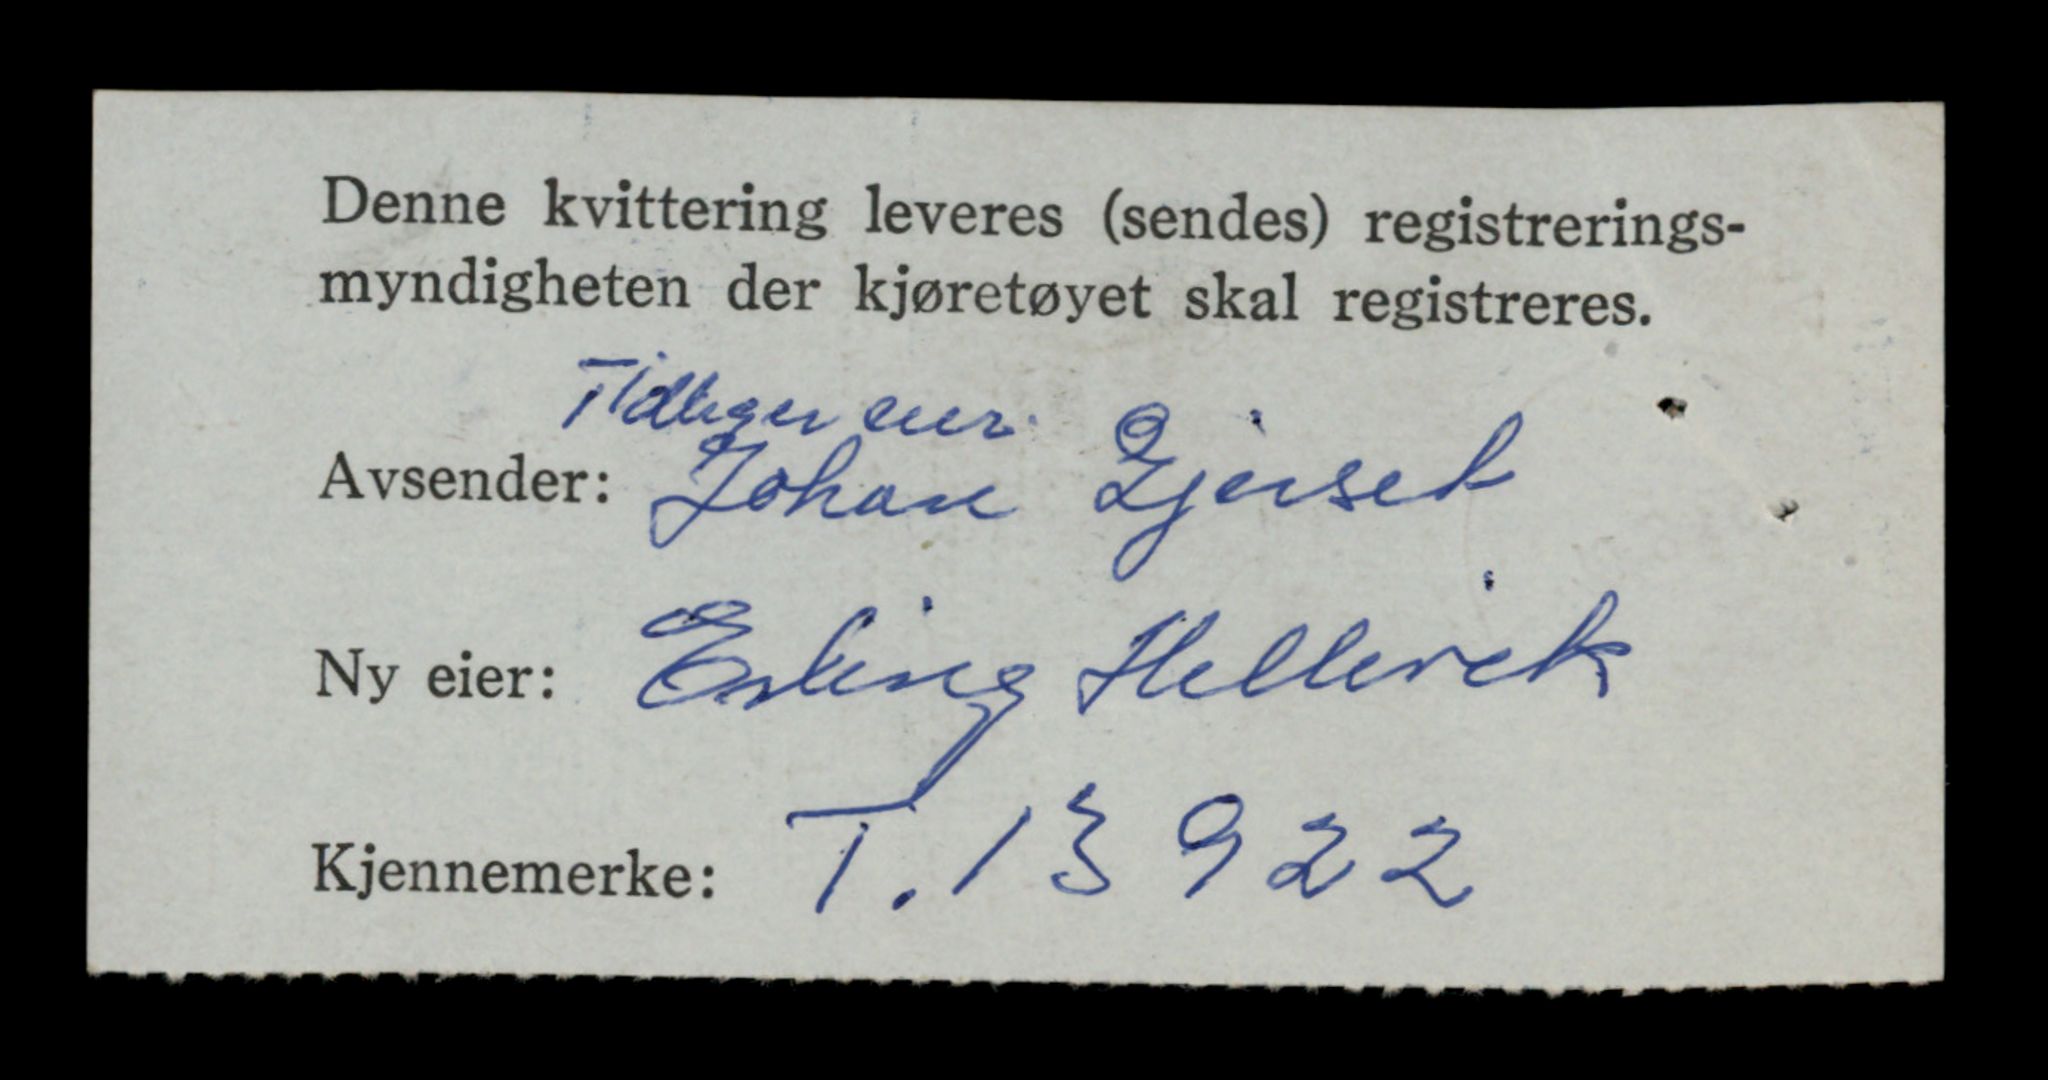 Denne kvittering leveres (sendes) registrerings-
myndigheten der kjøretøyet skal registreres.
Tidliger eier.
Avsender: Johan Gjerset
Ny eier: Erling Hellevik
Kjennemerke: T. 13922